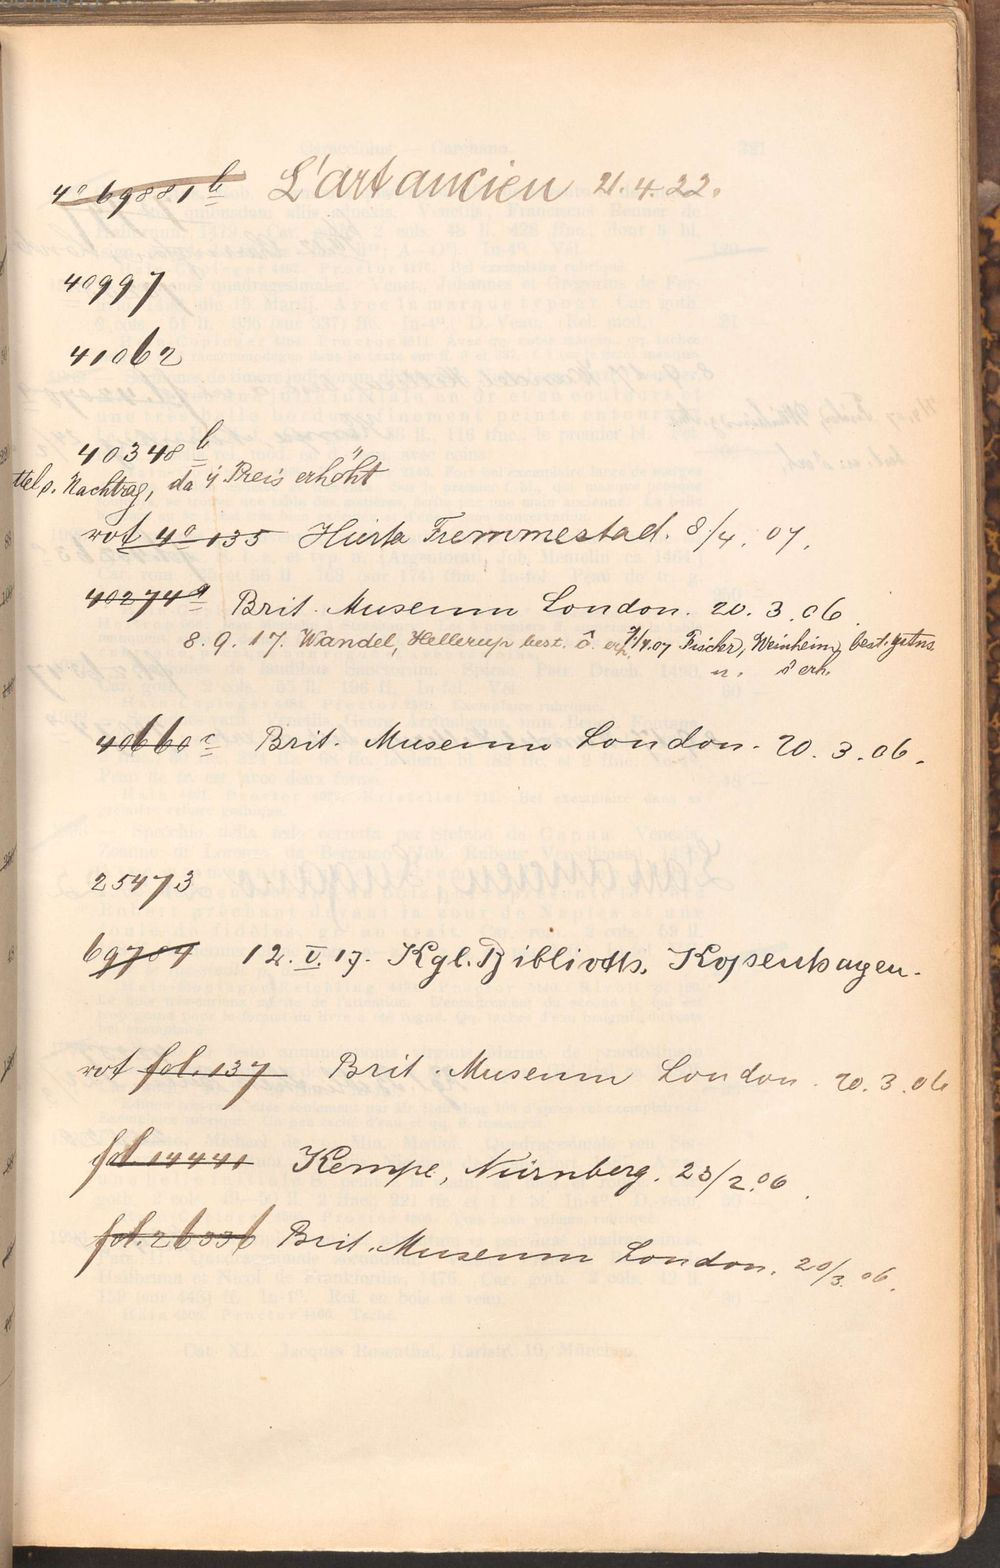 4° 69881b L'art ancien 21.4.22.
40997
41062
40348b
Nachtrag, da Preis erhöht
rot 4° 135 Hierta Fremmestad. 8/4. 07.
40274a Brit. Museum London. 20.3.06.
8.9.17. Wandel, Hellerup best. 7/4.07 Fischer, Weinheim, best.
u. erh.
40660c Brit. Museum London. 20.3.06.
25473
69709 12.V.17. Kgl. Biblioth. Kopenhagen.
rot fol. 137 Brit. Museum London. 20.3.06
fol 14441 Kempe, Nürnberg. 23/2.06.
fol. 26336 Brit. Museum London. 20/3.06.